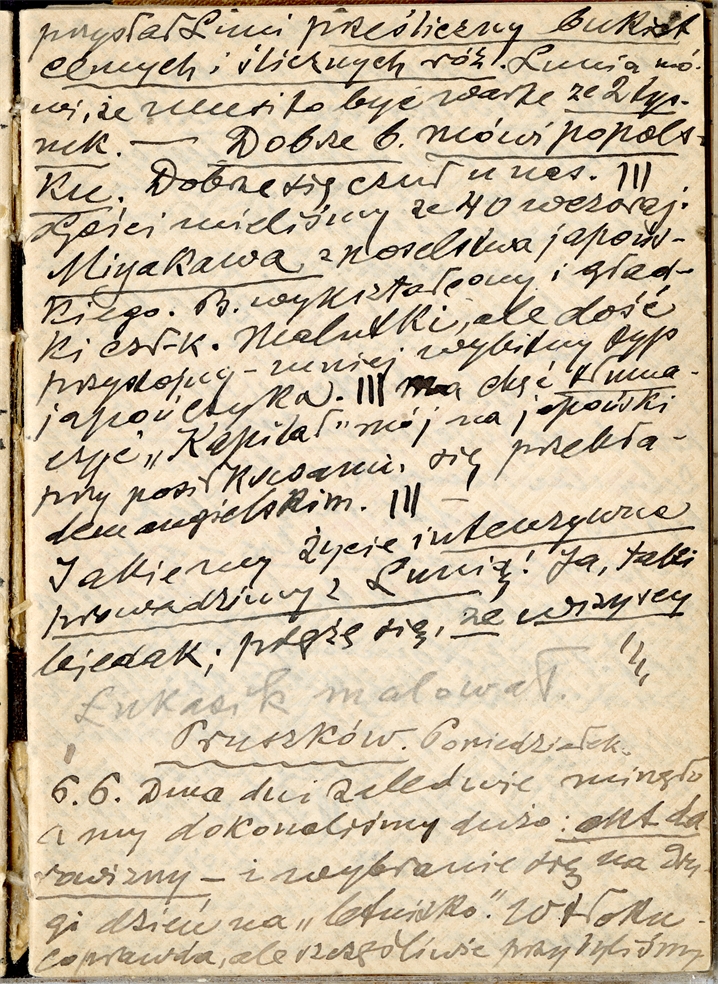 przysłał Luni prześliczny bukiet
cennych i ślicznych róż. Lunia mó-
wi, że musiało być warte ze 2 tys.
mk. — Dobrze b. mówi po pols-
ku. Dobrze się czuł u nas. III
Gości mieliśmy ze 40 wczoraj.
Miyakawa z poselstwa japońs-
kiego. B. wykształcony i gład-
ki czł-k. Malutki, ale dość
przystojny – mniej wybitny typ
japończyka. III ma chęć tłuma-
czyć „Kapitał" mój na japoński
przy posiłkowaniu się przekła-
dem angielskim. III —
Jakie my życie intenzywne
prowadzimy z Lunią! Ja, taki
biedak; prężę się, ze wszyscy
Łukasik malował.
Pruszków. Poniedziałek.
6.6. Dwa dni zaledwie minęło
a my dokonaliśmy dużo: akt da
rowizny – i wybranie się na dru-
gi dzień na „letnisko". W tłoku
coprawda, ale szczęśliwie przybyliśmy